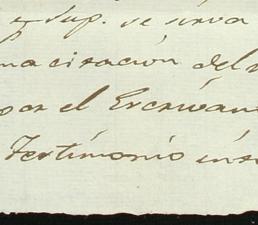 Sup. se sirva
macitación del
por el Escrivano
Testimonio inse